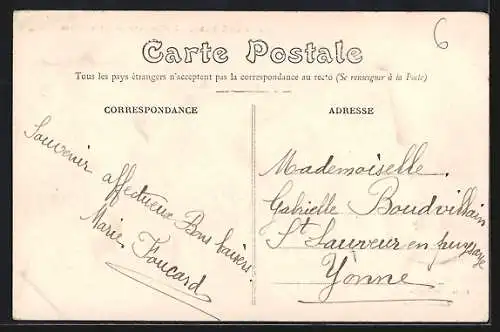 6
Carte Postale
Tous les pays étrangers n'acceptent pas la correspondance au recto (Se renseigner à la Poste)
CORRESPONDANCE
Souvenir
affectueux Bons baisers
Marie Foucard
ADRESSE
Mademoiselle
Gabrielle Boudvillain
St Sauveur en puysaye
Yonne